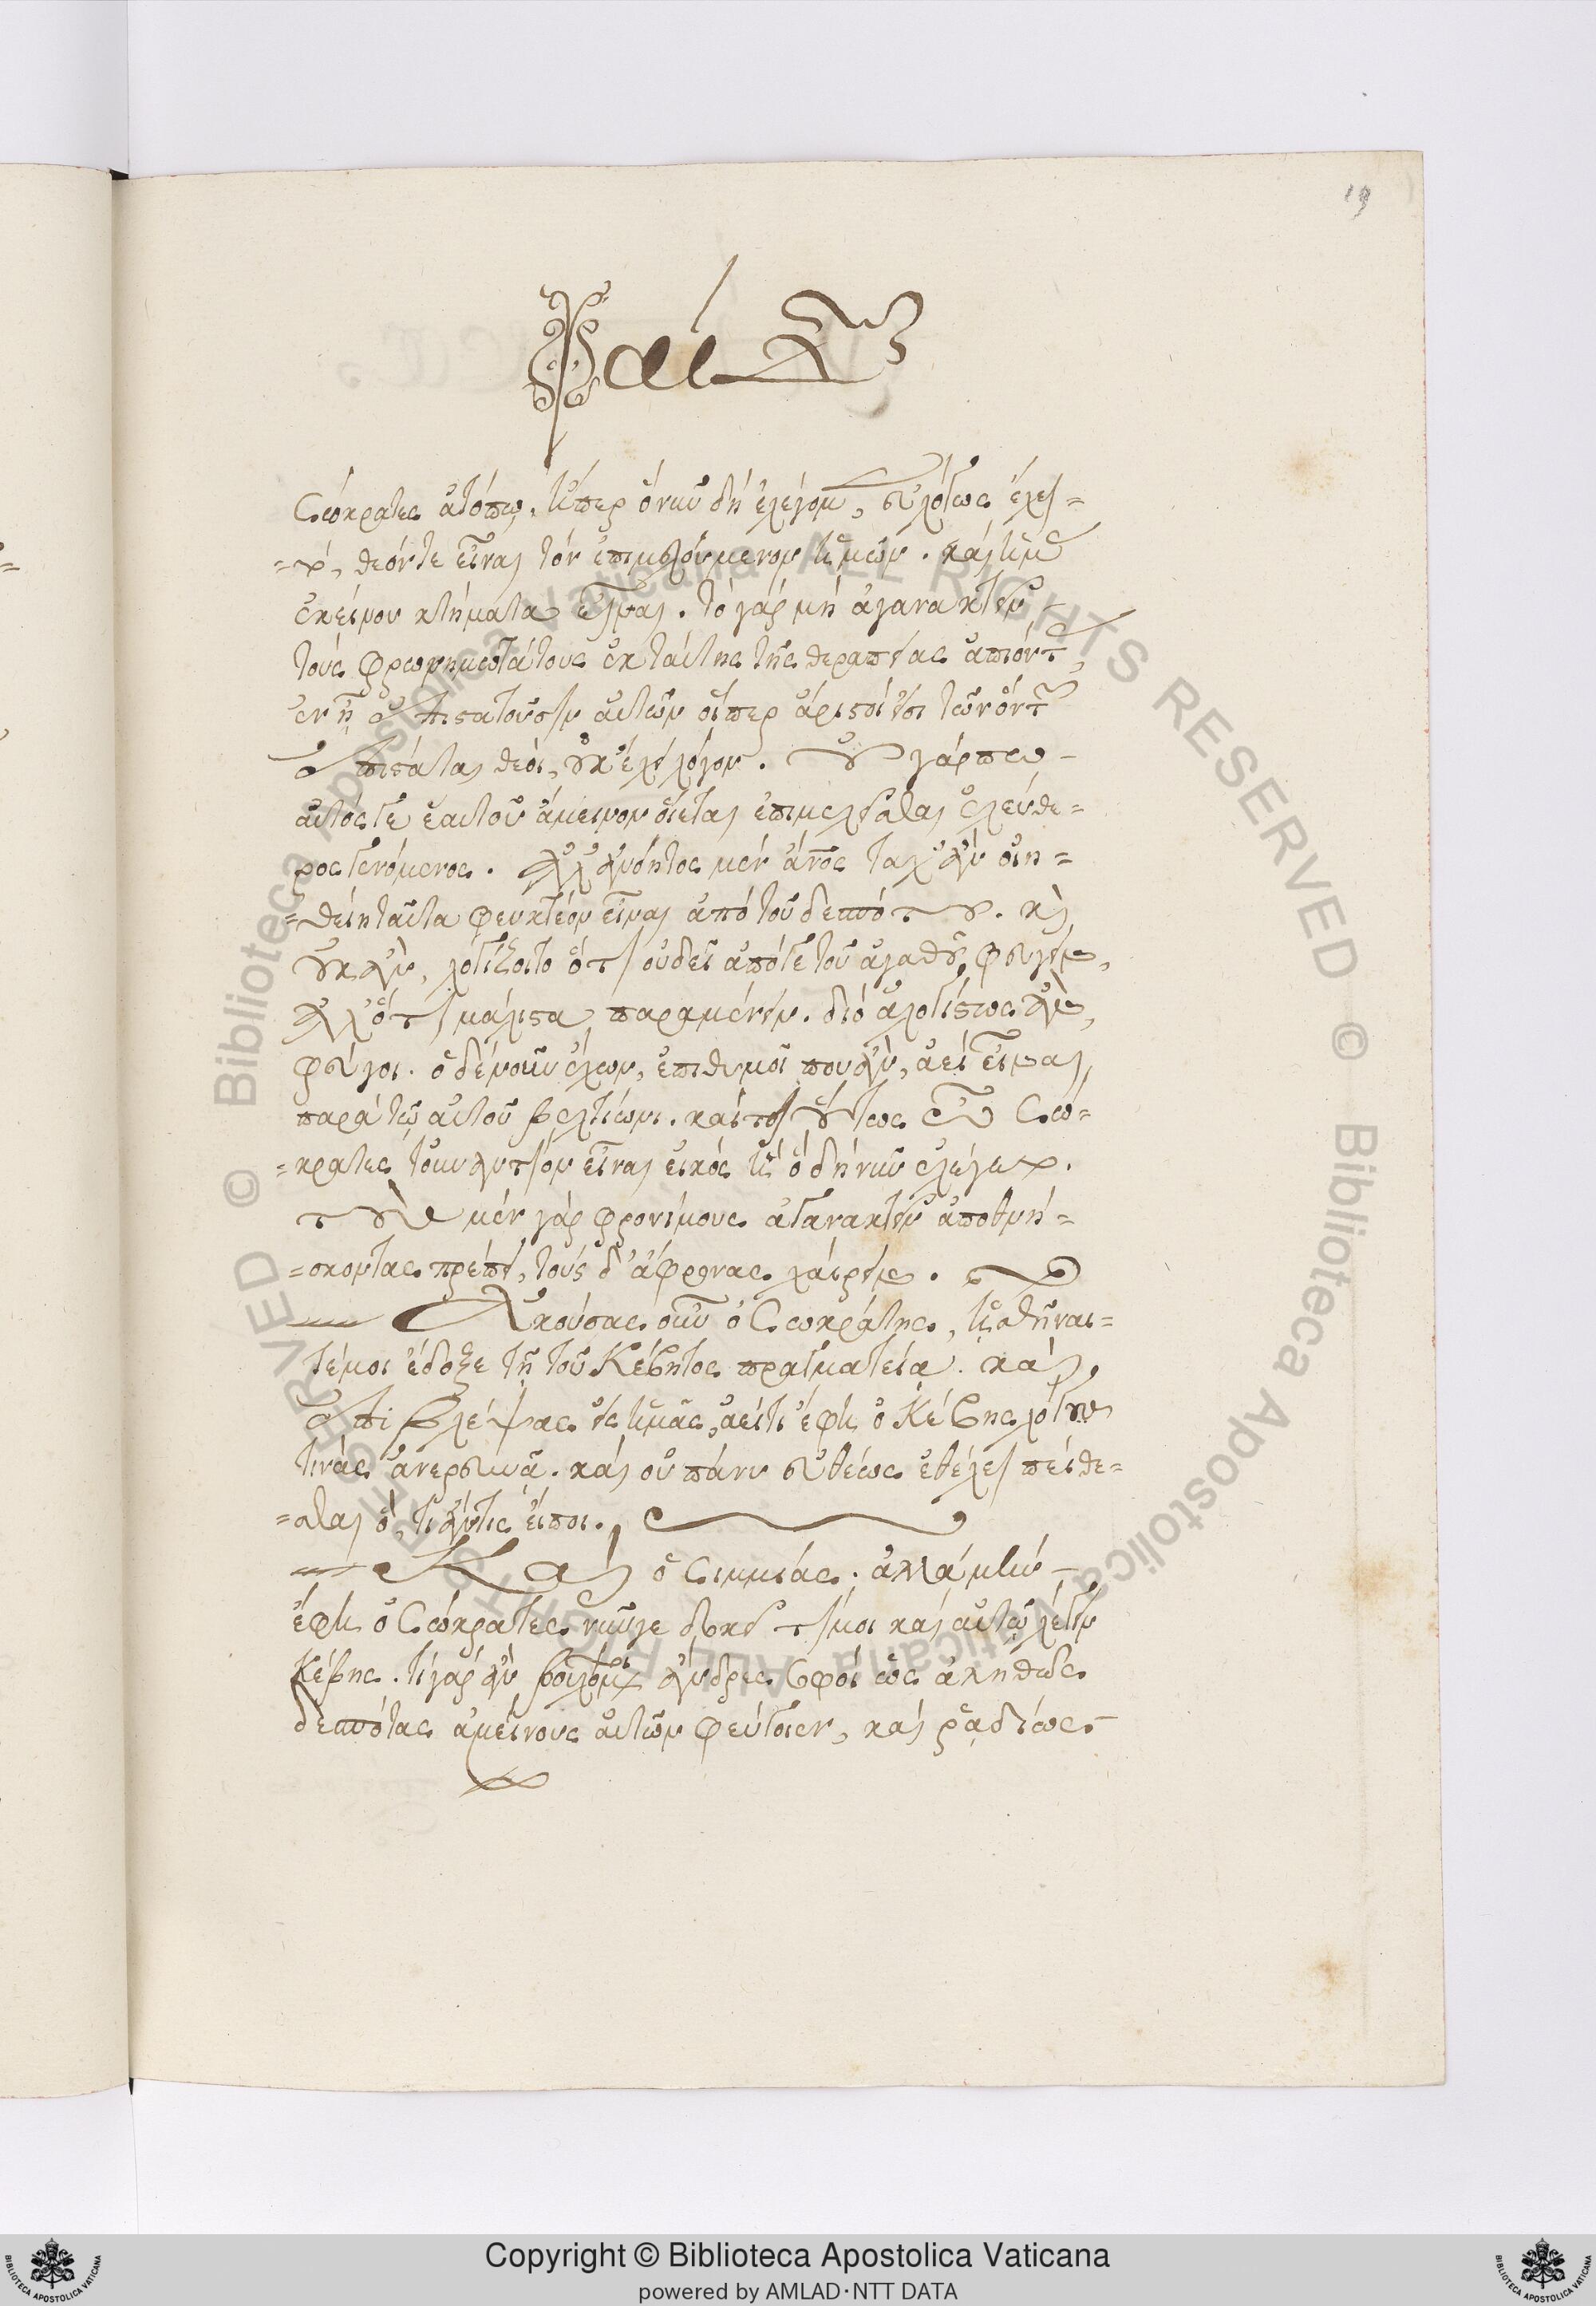 19
Φαίδων
Σώκρατες ἀτόπω, εἴπερ ὃ νῦν δὴ ἐλέγομεν, εὐλόγως ἔχει
=, θεόν τε εἶναι τὸν ἐπιμελούμενον ἡμῶν. καὶ ἡμᾶς
ἐκείνου κτήματα εἶναι. τὸ γὰρ μὴ ἀγανακτεῖν
τοὺς φρονιμωτάτους ἐκ ταύτης τῆς θεραπείας ἀπιόντας,
ἐν ᾗ ἐπιστατοῦσιν αὐτῶν οἵπερ ἄριστοί εἰσι τῶν ὄντων
ἐπιστάται θεοί, οὐκ ἔχει λόγον. οὐ γάρ που
αὐτός γε ἑαυτοῦ ἄμεινον οἴεται ἐπιμελεῖσθαι ἐλεύθε=
ρος γενόμενος. ἀλλ' ἀνόητος μὲν ἄνος ταχ' ἂν οἰη=
=θείη ταῦτα φευκτέον εἶναι ἀπὸ τοῦ δεσπότου. κὶ
οὐκ ἂν, λογίζοιτο ὅτι οὐ δεῖ ἀπό γε τοῦ ἀγαθοῦ φεύγειν,
ἀλλ' ὅτι μάλιστα παραμένειν. διὸ ἀλογίστως ἂν,
φεύγοι. ὁ δὲ νοῦν ἔχων, ἐπιθυμοῖ που ἂν, ἀεὶ εἶναι
παρὰ τῷ αὐτοῦ βελτίωνι. καίτοι οὕτως ὦ Σώ=
=κρατες τοὐναντίον εἶναι εἰκὸς ἢ ὃ δὴ νῦν ἐλέγετο.
τοὺς μὲν γὰρ φρονίμους ἀγανακτεῖν ἀποθνή=
=σκοντας πρέπει, τοὺς δ' ἄφρονας χαίρειν.
Ἀκούσας οὖν ὁ Σωκράτης, ἡσθῆναι=
τέ μοι ἔδοξε τῇ τοῦ Κέβητος πραγματείᾳ. καὶ
ἐπιβλέψας εἰς ἡμᾶς, ἀεί τι ἔφη ὁ Κέβης λόγους
τινὰς ἀνερευνᾷ. καὶ οὐ πάνυ εὐθέως ἐθέλει πείθε=
=σθαι ὅ, τι ἄν τις εἴποι.
Καὶ ὁ Σιμμίας. ἀλλὰ μὴν
ἔφη ὦ Σώκρατες νῦν γε δοκεῖ τί μοι καὶ αὐτῷ λέγειν
Κέβης. τί γὰρ ἂν βουλόμενοι ἄνδρες σοφοὶ ὡς ἀληθῶς
δεσπότας ἀμείνους αὐτῶν φεύγοιεν, καὶ ῥᾳδίως
Copyright © Biblioteca Apostolica Vaticana
powered by AMLAD·NTT DATA